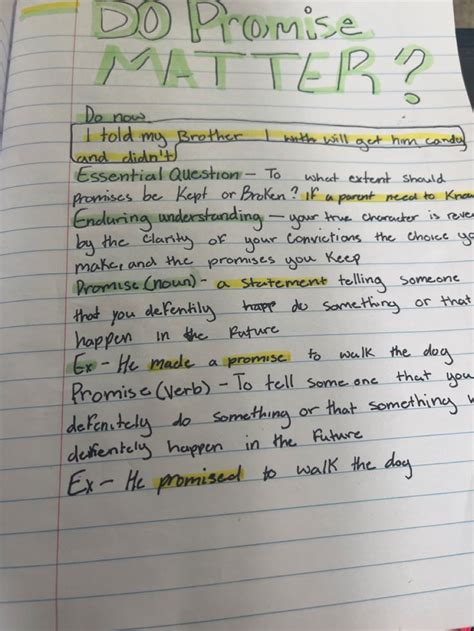 DO Promise
MATTER?
Do now
I told my Brother I will get him candy
and didn't
Essential Question - To what extent should
promises be Kept or Broken? If a parent need to Know
Enduring understanding - your true character is reve
by the clarity of your convictions the choice yo
make, and the promises you keep
Promise (noun) - a statement telling someone
that you defentily happ do something or that
happen in the future
Ex - He made a promise to walk the dog
Promise (verb) - To tell some one that you
defenitely do something or that something w
defientely happen in the future
Ex - He promised to walk the dog